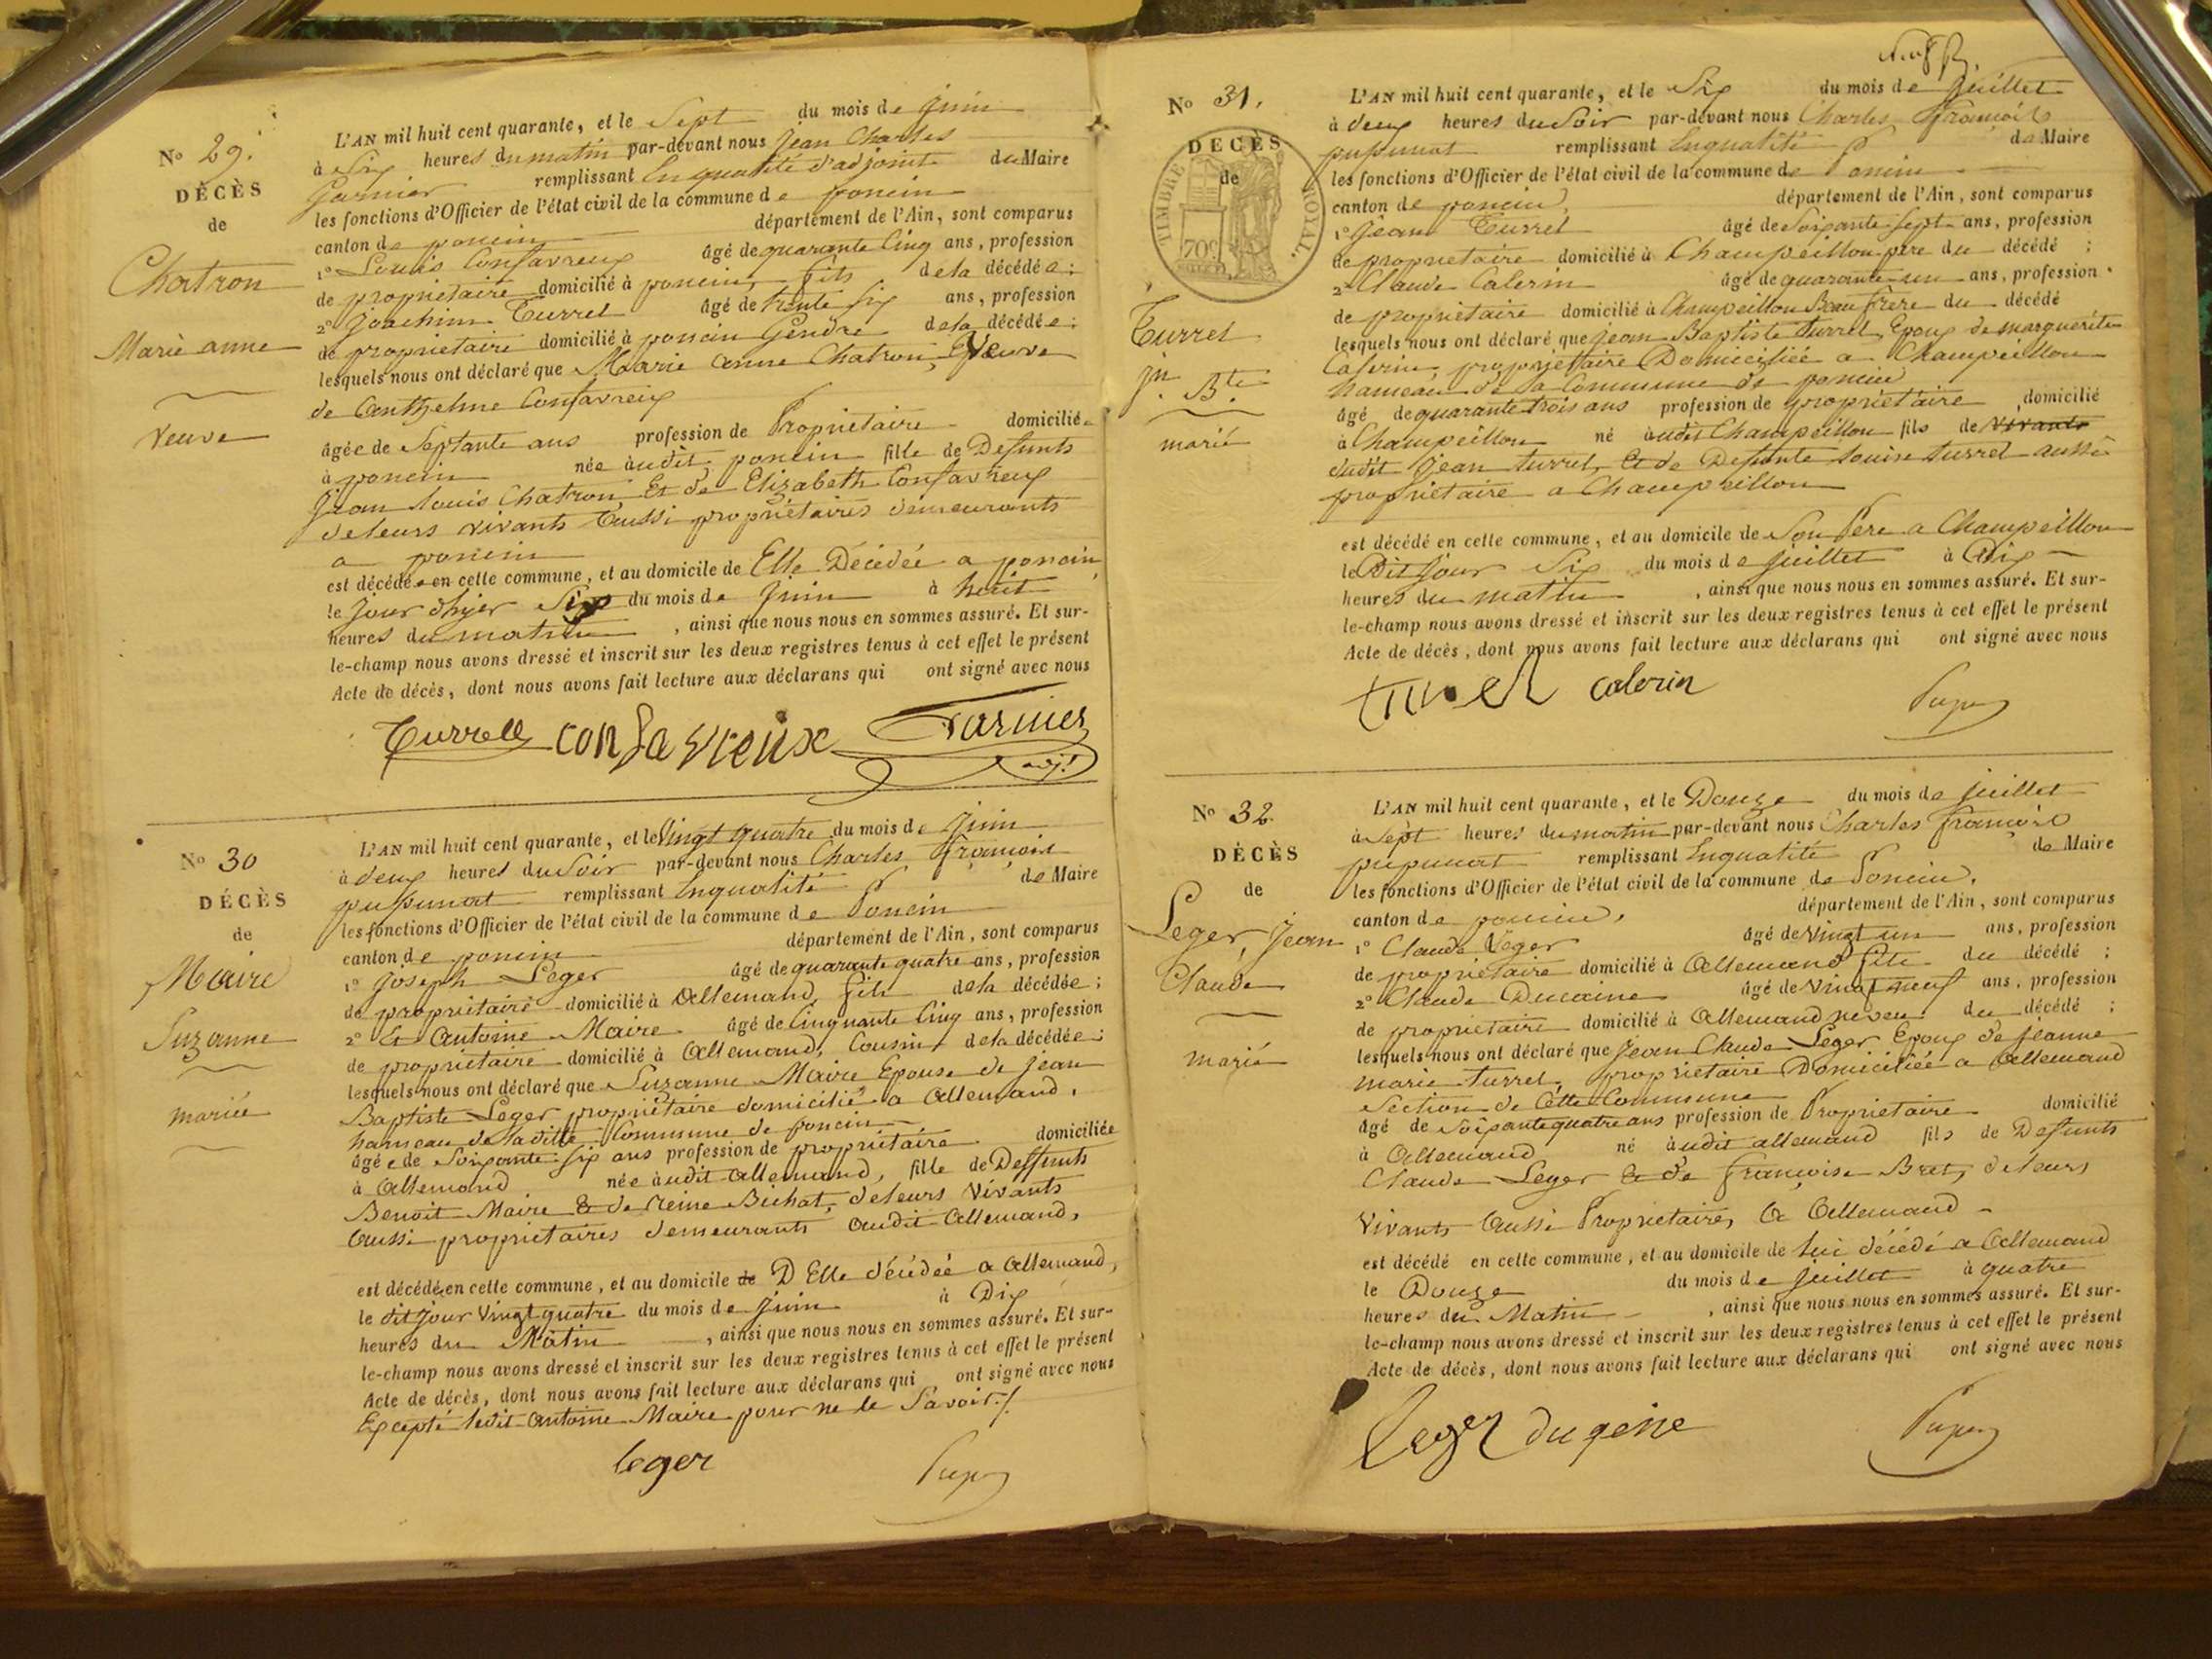 No 29.
DÉCÈS
de
Chatron
Marie anne
veuve
L'AN mil huit cent quarante, et le Sept du mois de Juin
à Six heures du matin par-devant nous Jean Charles
Garnier remplissant En qualité d'adjoint du Maire
les fonctions d'Officier de l'état civil de la commune de poncin
canton de poncin département de l'Ain, sont comparus
1° Louis Confavreux âgé de quarante Cinq ans, profession
de propriétaire domicilié à poncin, fils de la décédée ;
2° Joachim Turrel âgé de trente six ans, profession
de propriétaire domicilié à poncin Gendre de la décédée ;
lesquels nous ont déclaré que Marie anne Chatron, Veuve
de Anthelme Confavreux
âgée de Septante ans profession de Propriétaire domiciliée
à poncin née audit poncin fille de Defunts
Jean Louis Chatron Et de Elizabeth Confavreux
de leurs vivants aussi propriétaires demeurants
a poncin
est décédée en cette commune, et au domicile de Elle Décédée a poncin
le jour d'hyer Six du mois de Juin à huit
heures du matin , ainsi que nous nous en sommes assuré. Et sur-
le-champ nous avons dressé et inscrit sur les deux registres tenus à cet effet le présent
Acte de décès, dont nous avons fait lecture aux déclarans qui ont signé avec nous
Turrell confavreux Garnier
adj!
No 30
DÉCÈS
de
Maire
Suzanne
mariée
L'AN mil huit cent quarante, et le Vingt quatre du mois de Juin
à deux heures du Soir par-devant nous Charles François
pupunat remplissant Enqualité de Maire
les fonctions d'Officier de l'état civil de la commune de Poncin
canton de poncin département de l'Ain, sont comparus
1° Joseph Leger âgé de quarante quatre ans, profession
de propriétaire domicilié à Allemand fils de la décédée ;
2° Et Antoine Maire âgé de Cinquante Cinq ans, profession
de propriétaire domicilié à Allemand, Cousin de la décédée ;
lesquels nous ont déclaré que Suzanne Maire Epouse de Jean
Baptiste Leger propriétaire domicilié a Allemand,
hameau de la ditte Commune de poncin
âgée de Soixante six ans profession de propriétaire domiciliée
à Allemand née audit Allemand, fille de Deffunts
Benoit Maire & de Reine Bichat, de leurs Vivants
aussi propriétaires demeurants audit Allemand,
est décédée en cette commune, et au domicile de D Elle décédée a Allemand,
le dit jour Vingt quatre du mois de Juin à Dix
heures du Matin , ainsi que nous nous en sommes assuré. Et sur-
le-champ nous avons dressé et inscrit sur les deux registres tenus à cet effet le présent
Acte de décès, dont nous avons fait lecture aux déclarans qui ont signé avec nous
Excepté ledit Antoine Maire pour ne le Savoir ./.
leger Pup
No 31.
DÉCÈS
de
TIMBRE ROYAL.
70c.
Turrel
Jn Bte
marié
L'AN mil huit cent quarante, et le Six du mois de Juillet
à deux heures du Soir par-devant nous Charles François
pupunat remplissant Enqualité de Maire
les fonctions d'Officier de l'état civil de la commune de Poncin
canton de poncin, département de l'Ain, sont comparus
1° Jean Turrel âgé de Soixante sept ans, profession
de propriétaire domicilié à Champeillon père du décédé ;
2° Claude Calerin âgé de quarante un ans, profession
de propriétaire domicilié à Champeillon Beau frère du décédé
lesquels nous ont déclaré que Jean Baptiste turrel, Epoux de marguerite
Calerin, propriétaire Domiciliée a Champeillon
hameau de la Commune de poncin
âgé de quarante trois ans profession de propriétaire domicilié
à Champeillon né audit Champeillon fils de Vivants
dudit Jean turrel, Et de Defunte Louise turrel aussi
propriétaire a Champeillon
est décédé en cette commune, et au domicile de Son Père a Champeillon
le Dit jour Six du mois de Juillet à Dix
heures du matin , ainsi que nous nous en sommes assuré. Et sur-
le-champ nous avons dressé et inscrit sur les deux registres tenus à cet effet le présent
Acte de décès, dont nous avons fait lecture aux déclarans qui ont signé avec nous
turrel calerin Pup
No 32.
DÉCÈS
de
Leger, Jean
Claude
marié
L'AN mil huit cent quarante, et le Douze du mois de Juillet
à Sept heures du matin par-devant nous Charles François
pupunat remplissant Enqualité de Maire
les fonctions d'Officier de l'état civil de la commune de Poncin.
canton de poncin, département de l'Ain, sont comparus
1° Claude Leger âgé de Vingt un ans, profession
de propriétaire domicilié à Allemand fils du décédé ;
2° Claude Ducaine âgé de Vingt neuf ans, profession
de propriétaire domicilié à Allemand neveu du décédé ;
lesquels nous ont déclaré que Jean Claude Leger Epoux de Jeanne
marie turrel, propriétaire Domiciliée a Allemand
Section de Cette Commune
âgé de Soixante quatre ans profession de Propriétaire domicilié
à Allemand né audit allemand fils de Defunts
Claude Leger & de Françoise Bret, de leurs
Vivants aussi Propriétaires a Allemand
est décédé en cette commune, et au domicile de lui décédé a Allemand
le Douze du mois de Juillet à quatre
heures du Matin , ainsi que nous nous en sommes assuré. Et sur-
le-champ nous avons dressé et inscrit sur les deux registres tenus à cet effet le présent
Acte de décès, dont nous avons fait lecture aux déclarans qui ont signé avec nous
leger dugene Pup